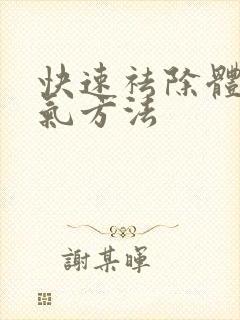 快速祛除體
氣方法
謝某暉